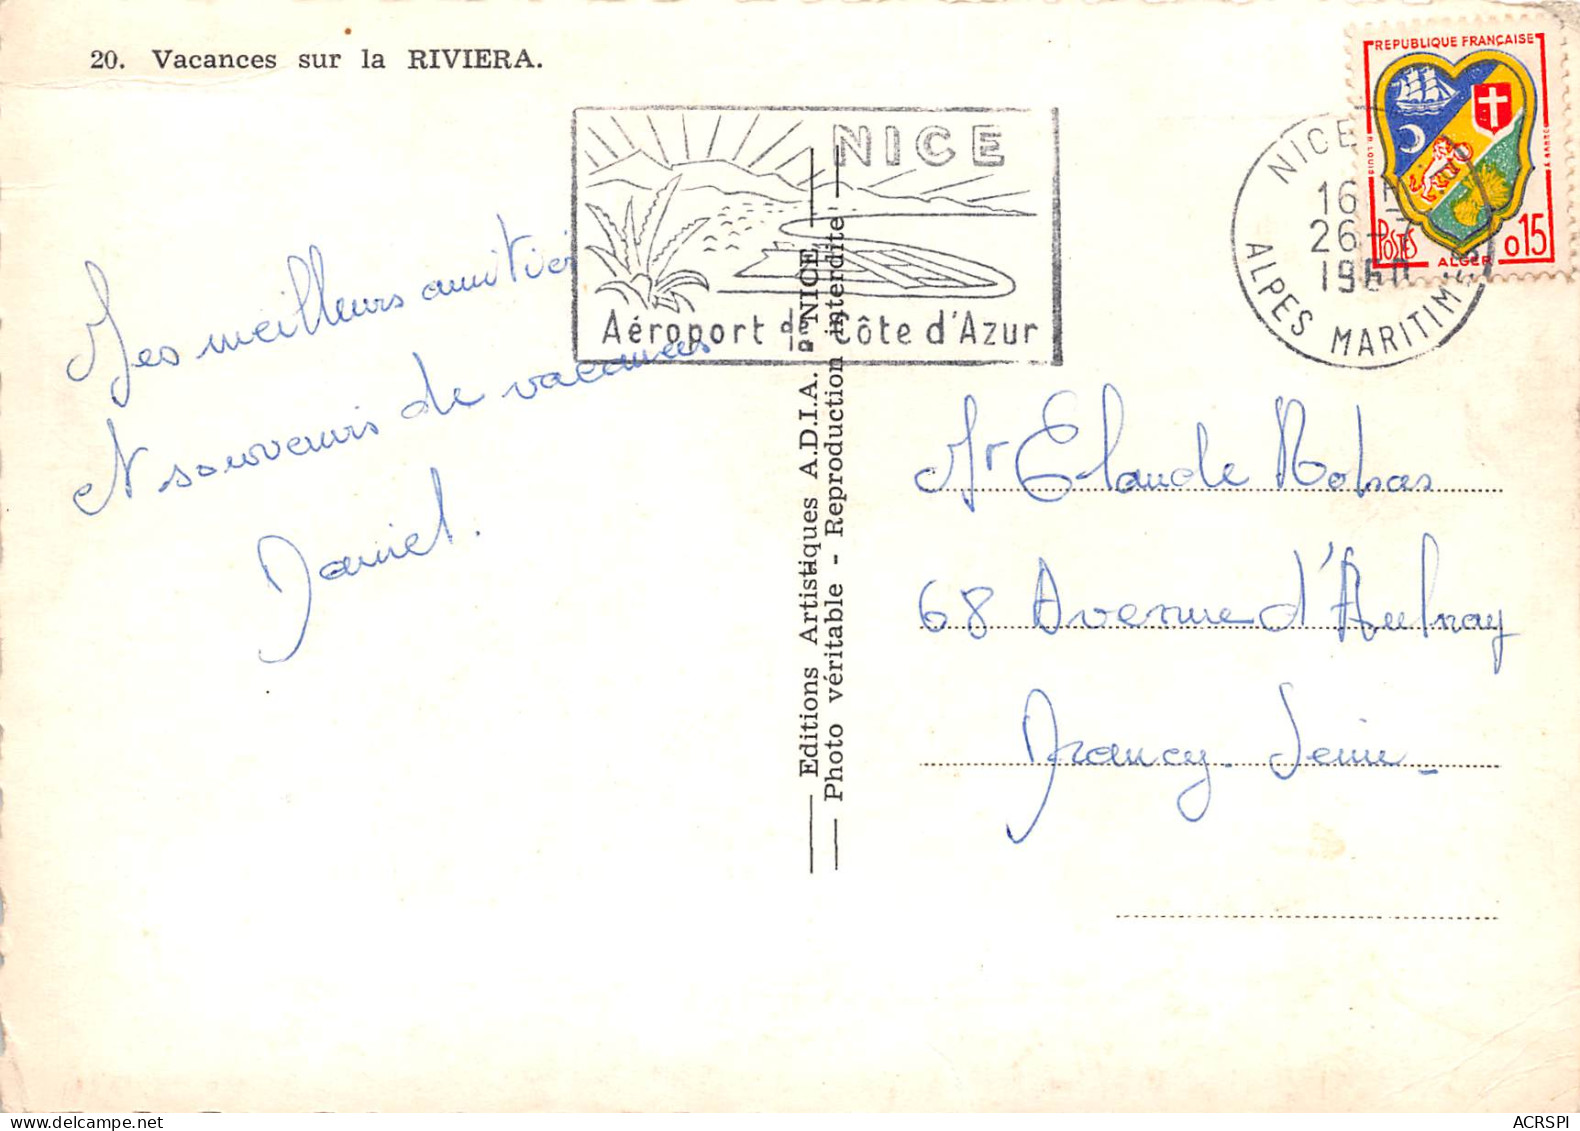 20. Vacances sur la RIVIERA.
NICE
Aéroport de la côte d'Azur
NICE
16 H
26-7
1960
ALPES MARITIMES
REPUBLIQUE FRANÇAISE
POSTES
ALGER
0,15
Mes meilleurs amitiés
Et souvenirs de vacances
Daniel.
Editions Artistiques A.D.I.A. - NICE
Photo véritable - Reproduction interdite
Mr Claude
68 Avenue d'Aulnay
Drancy. Seine -
ACRSPI